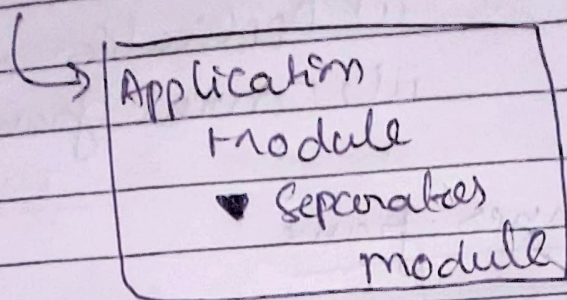 Application
Module
Separates
module